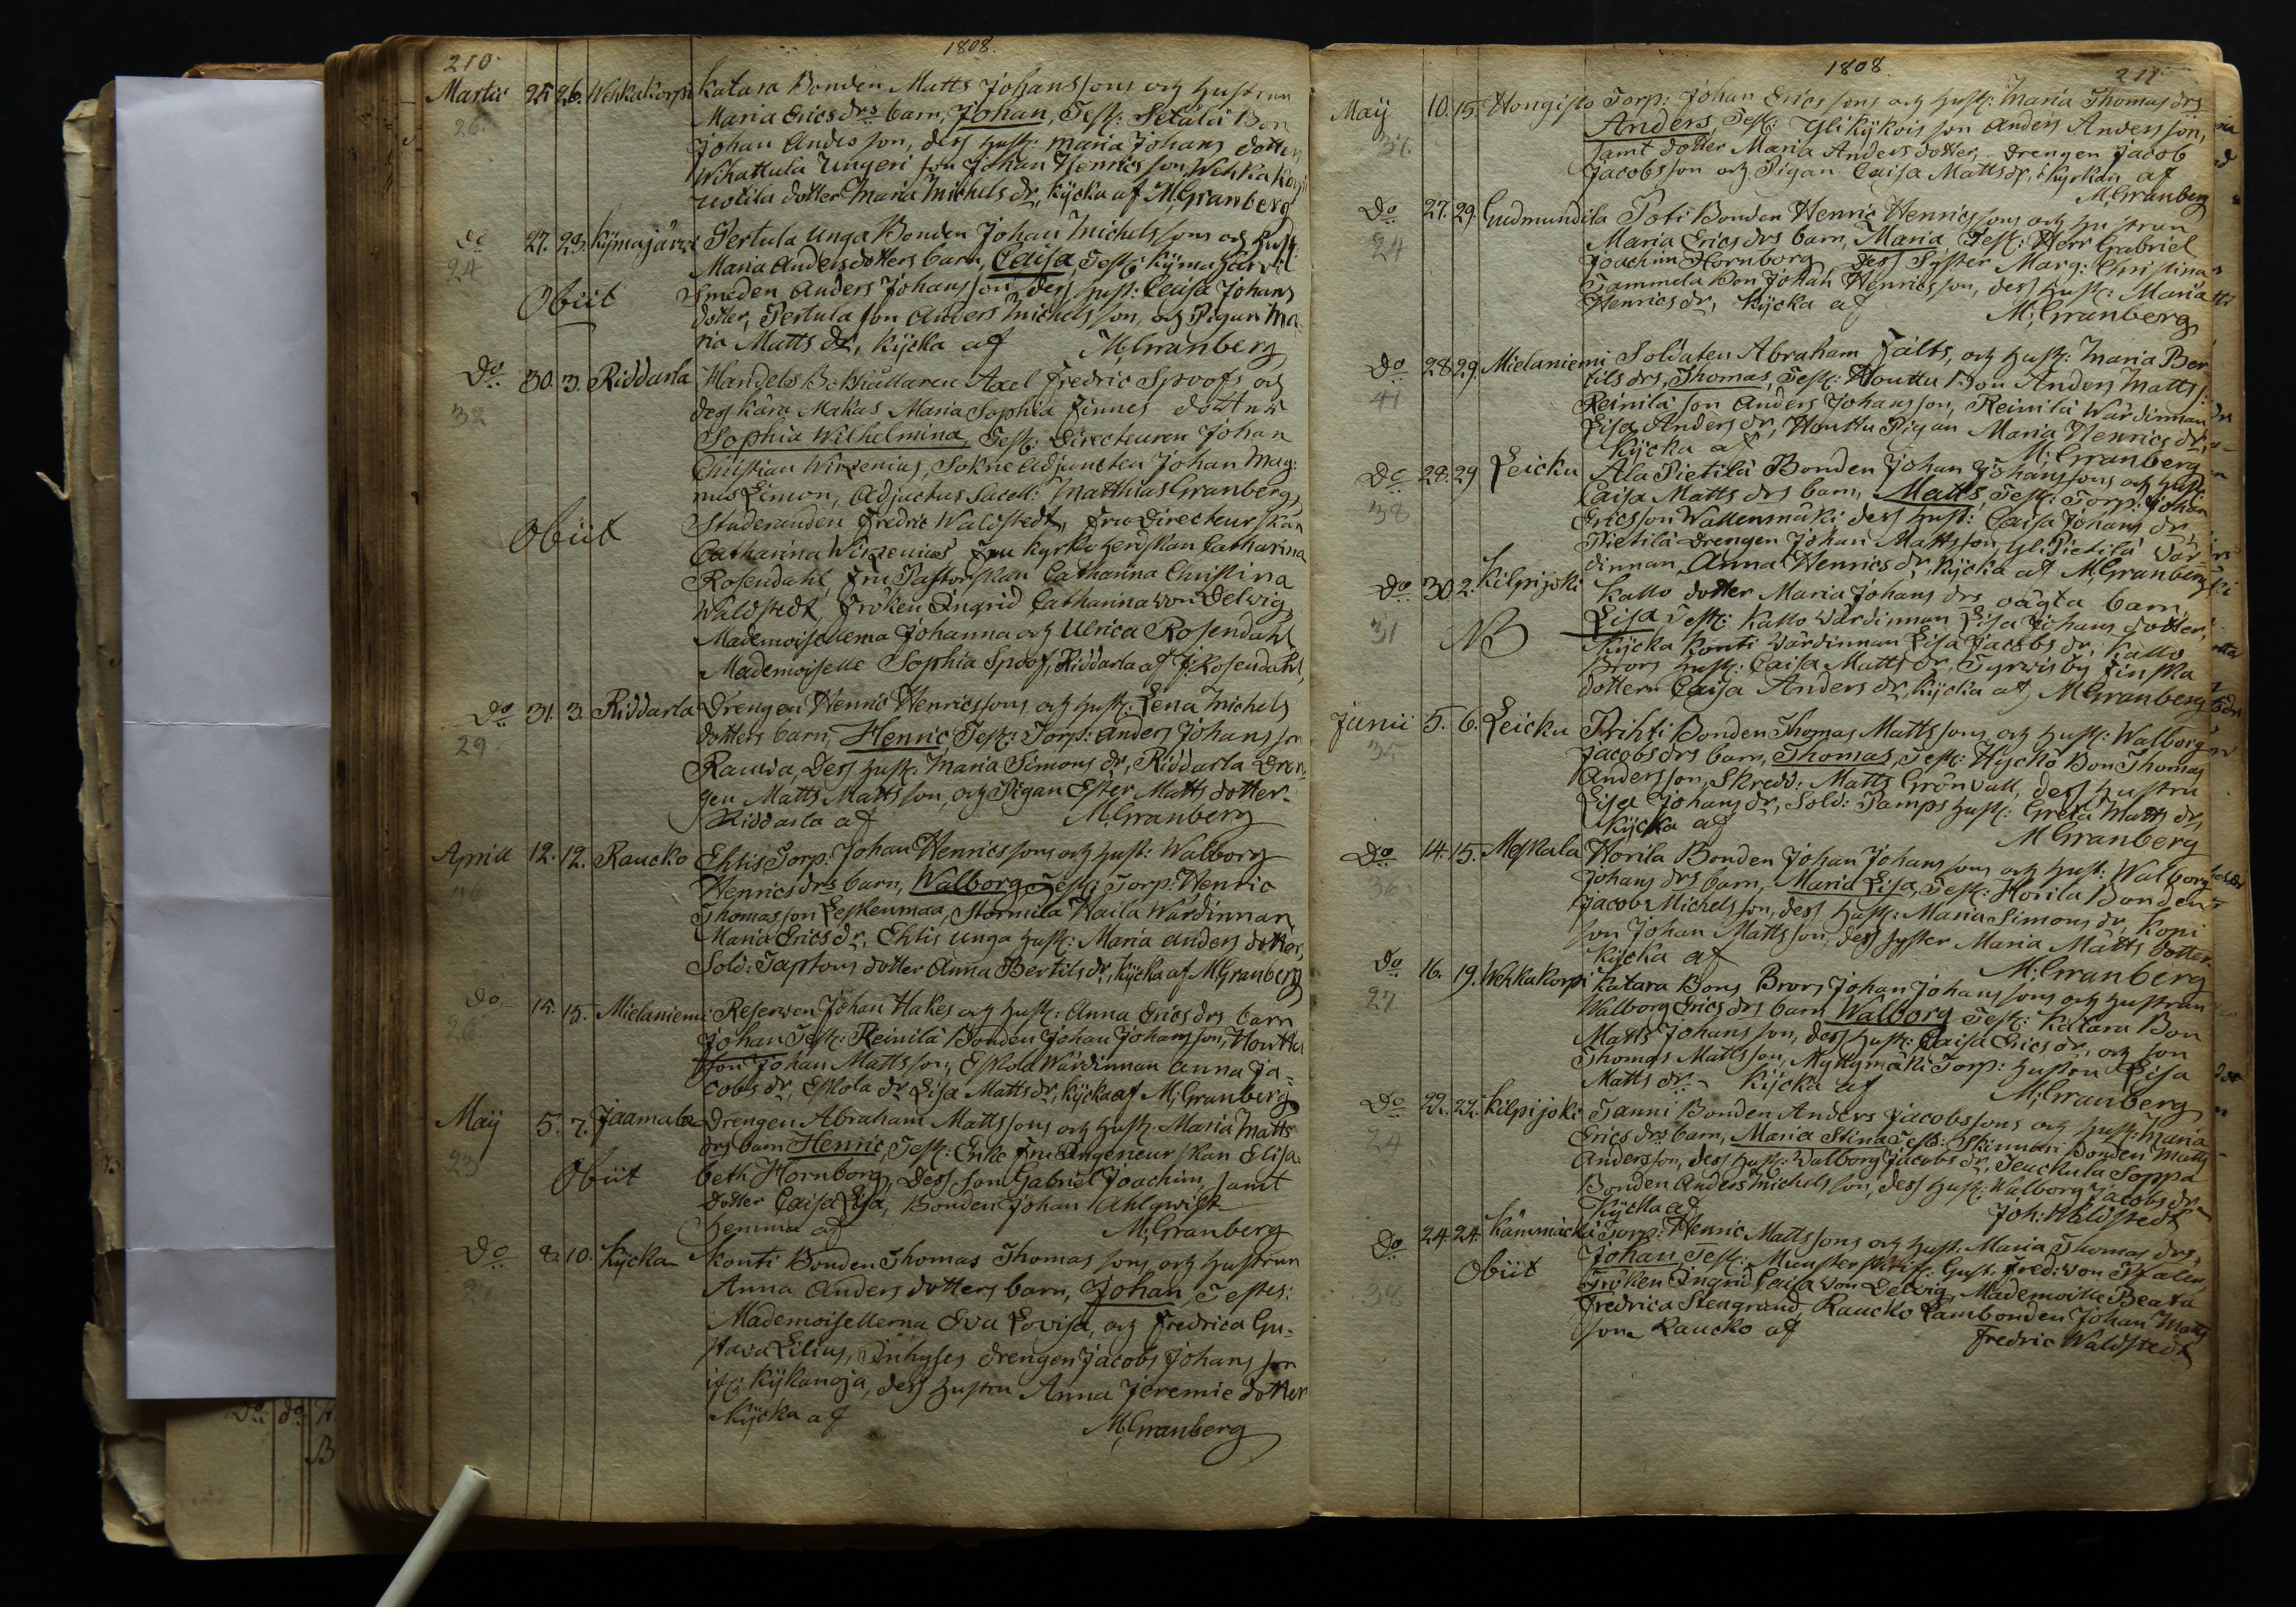 210
1808.
Martii 25 26. Wehkakorpi Katara Bonden Matts Johanssons och hustrun
26. Maria Ericsdrs barn, Johan, Test: Setälä Bon
Johan Andersson, dess hust: Maria Johans dotter,
Wihattula Ungeri son Johan Henricsson, Wehkakorpi
uotila dotter Maria Michels dr, Kycka af M. Granberg
Do 27. 29. Kymajärvi Pertula Unga Bonden Johan Michelssons och hust:
24 Maria Andersdotters barn, Caisa, Test: Kymajärvi
Obiit Smeden Anders Johansson, dess hust: Caisa Johans
dotter, Pertula son Anders Michelsson, och Pigan Ma-
ria Matts dr, Kycka af M. Granberg
Do 30. 3. Riddarla Handels Bokhållaren Axel Fredric Spoofs och
32 dess kära Makas Maria Sophia Finnes dotter
Sophia Wilhelmina, Test: Directeuren Johan
Christian Wirzenius, Sokne Adjuncten Johan Mag:
nus Limon, Adjuctus Sacell: Matthias Granberg,
Obiit Studeranden Fredric Waldstedt, Fru Directeurskan
Catharina Wirzenius Fru Kyrkoherdskan Catharina
Rosendahl, Fru Pastorskan Catharina Christina
Waldstedt, Fröken Ingrid Catharina von Delwig,
Mademoisellerna Johanna och Ulrica Rosendahl
Mademoiselle Sophia Spoof, Riddarla af J: Rosendahl,
Do 31. 3. Riddarla Drengen Henric Henricssons och hust: Lena Michels
29. dotters barn, Henric, Test: Torp: Anders Johansson
Raucia, dess hust. Maria Simons dr, Riddarla Dren
gen Matts Mattsson, och Pigan Ester Matts dotter.
Riddarla af M. Granberg
Aprill 12. 12. Raucko Ehtis Torp: Johan Henricssons och hust: Walborg
46 Henrics drs barn, Walborg, Test: Torp: Henric
Thomasson Leskenmaa, Stormila Haila Wärdinnan
Maria Erics dr, Ehtis unga hust: Maria Anders dotter,
Sold: Taptons dotter Anna Bertils dr, Kycka af M. Granberg
Do 15. 15. Mielaniemi Reserven Johan Hakes och hust: Anna Erics drs barn
26 Johan Test: Reinilä Bonden Johan Johansson, Houttu
son Johan Mattsson, Eskola Wärdinnan Anna Ja-
cobs dr, Eskola dr Lisa Matts dr, Kycka af M; Granberg
Maij 5. 7. Jaamala Drengen Abraham Mattssons och hust: Maria Matts
23 drs barn Henric, Test: Enke Fru Ingenieurskan Elisa
Obiit beth Hornborg, Dess son Gabriel Joachim, samt
dotter Caisa Lisa, Bonden Johan Ahlqwist
hemma af M; Granberg
Do 8. 10. Kycka Konti Bonden Thomas Thomas sons och hustrun
Anna Anders dotters barn, Johan, Testes:
Mademoisellerna Eva Lovisa, och Fredrica Gu-
stava Lilius, Inhyses drengen Jacob Johansson
Kykanoja, dess hustru Anna Jeremie dotter
Kycka af M. Granberg
1808.
211
Maij 10. 15. Hongisto Torp: Johan Ericssons och hust: Maria Thomas drs
37. Anders, Test: Ylikykois son Anders Andersson,
samt dotter Maria Anders dotter, drengen Jacob
Jacobsson och Pigan Caisa Matts dr. i Kyrkan af
M. Granberg
Do 27. 29. Gudmundila Poti Bonden Henric Henricssons och hustrun
24 Maria Erics drs barn, Maria, Test: Herr Gabriel
Joachim Hornborg dess Syster Marg: Christina
Tammela Bon Johan Henricsson, dess hust: Maria
Henrics dr, Kycka af M; Granberg
Do 28 29. Mielaniemi Soldaten Abraham Fälts, och hust: Maria Ber
41 tils drs, Thomas, Test: Houttu Bon Anders Matts s:
Reinilä son Anders Johansson, Reinilä Wärdinnan
Lisa Anders dr, Houttu Pigan Maria Henrics dr,
Kycka af M: Granberg
Do 28. 29 Leicku Ala Pietilä Bonden Johan Johanssons och hust:
38 Caisa Matts drs barn, Matts, Test: Torp: Johan
Ericsson Wallenmäki dess hust: Caisa Johans dr,
Pietilä Drengen Johan Mattsson, Yli Pietilä Wär-
dinnan Anna Henrics dr, Kycka af M. Granberg
Do 30 2. Kilpijoki Kallo dotter Maria Johans drs oägta barn,
31 NB Lisa Test: Kallo Wärdinnan Lisa Johans dotter,
Kycka Konti Wärdinnan Lisa Jacobs dr, Kallo
Brors hust: Caisa Matts dr, Syrwis by Finska
dottern Caisa Anders dr Kycka af M. Granberg
Junii 5. 6. Leicku Prihti Bonden Thomas Mattssons och hust: Walborg
35 Jacobs drs barn, Thomas, Test: Hyckö Bon Thomas
Andersson, Skredd: Matts Grönvall, dess hustru
Lisa Johans dr, Sold: Tamps hust: Greta Matts dr,
Kycka af M Granberg
Do 14. 15. Meskala Horila Bonden Johan Johanssons och hust: Walborg
36 Johans drs barn, Maria Lisa, Test: Horila Bonden
Jacob Michelsson, dess hust: Maria Simons dr, Kopi
son Johan Mattsson, dess syster Maria Matts dotter
Kycka af M: Granberg
Do 16. 19. Wehkakorpi Katara Bons Brors Johan Johanssons och hustrun
27 Walborg Erics drs barn Walborg Test: Katara Bon
Matts Johansson, dess hust: Caisa Erics dr, och son
Thomas Mattsson, Myllymäki Torp: hustru Lisa
Matts dr. Kycka af M; Granberg
Do 22. 22. Kilpijoki Tanni Bonden Anders Jacobssons och hust: Maria
24 Erics drs barn, Maria Stina Test: Skinnari Bonden Matts
Andersson, dess hust: Walborg Jacobs dr, Teuckula Soppa
Bonden Anders Michelsson, dess hust: Walborg Jacobs dr
Kycka af Joh: Waldstedt
Do 24. 24. Kämmäckä Torp: Henric Mattssons och hust: Maria Thomas drs,
Obiit Johan, Test: Munsterskrif: Gust. Fred: von
38 Fröken Ingrid Caisa von Delwig, Mademoiselle Beata
Fredrica Stengrund, Raucko Lambonden Johan Matts
son Raucko af Fredric Waldstedt